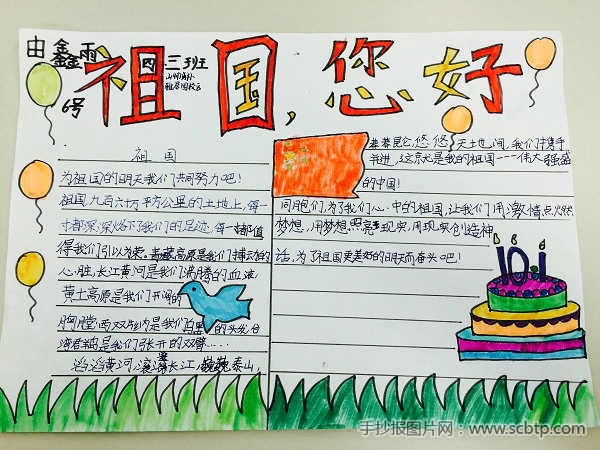 由鑫雨
四三班
6号
祖国,您好
祖国
为祖国的明天我们共同努力吧!
祖国九百六十万平方公里的土地上,每一
寸都深深烙下了我们的足迹,每一寸都值
得我们引以为荣。青藏高原是我们
心脏,长江黄河是我们沸腾的血液
黄土高原是我们开阔的
胸膛,西双版纳是我们 的头发,台
海 是我们张开的双臂……
滔滔黄河,滚滚长江,巍巍泰山,
莽莽昆仑,悠悠天地间,我们携手
并进,这就是我的祖国----伟大强盛
的中国!
同胞们,为了我们心中的祖国,让我们用激情点燃
梦想,用梦想照亮现实,用现实创造神
话,为了祖国更美好的明天而奋斗吧!
10.1
手抄报图片网:www.scbtp.com